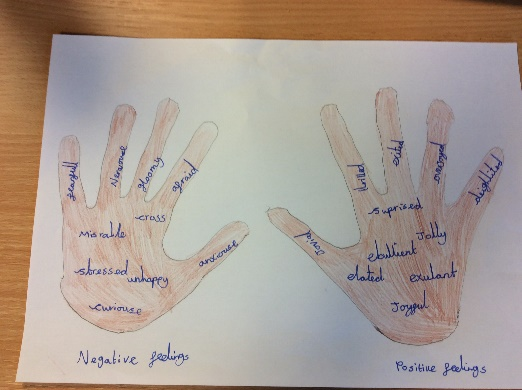 fearfull
Nervouse
gloomy
afraid
anxiouse
crass
Misrable
stressed
unhappy
curiouse
Negative feelings
thrilled
exited
overjoyed
delighted
Jovial
suprised
Jolly
ebullient
elated
exulant
Joyful
Positive feelings